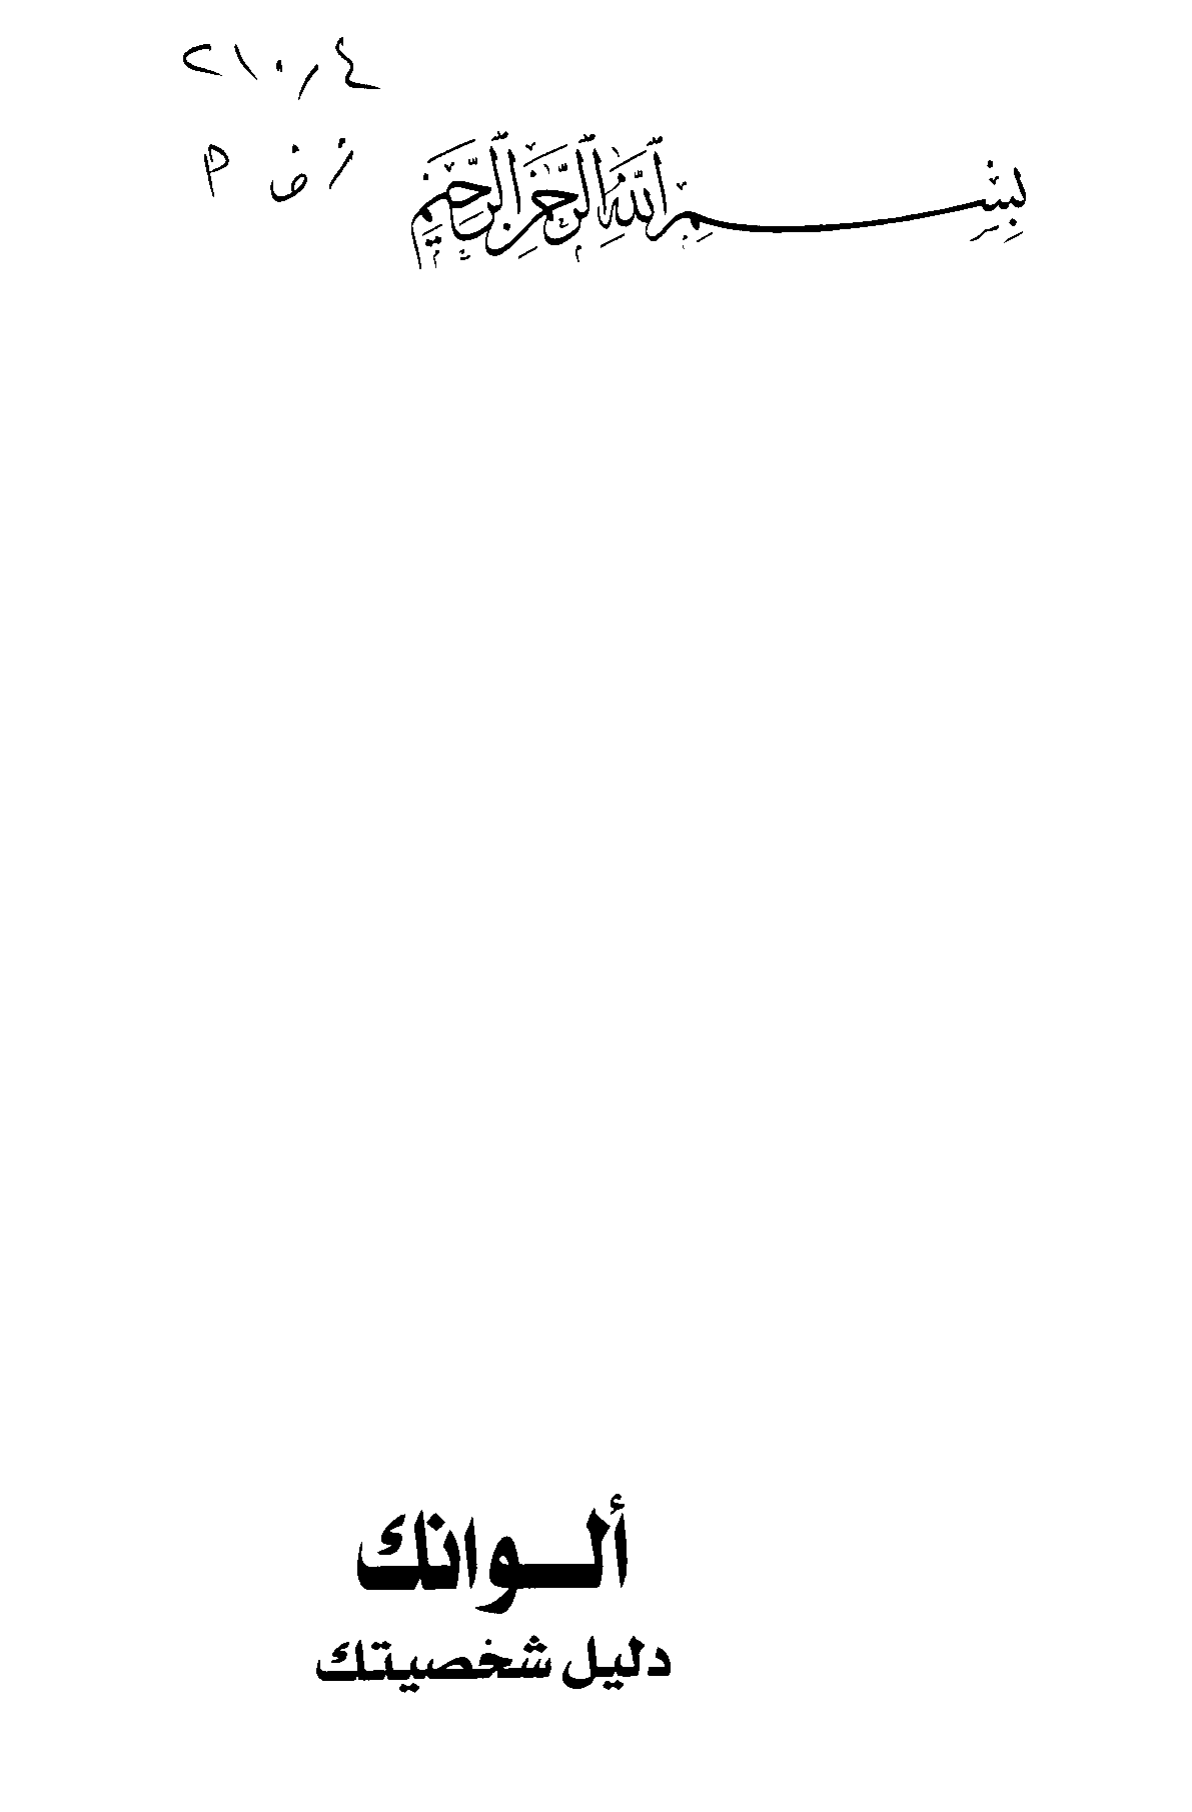 ٢١٠٫٤
بِسْمِ اللَّهِ الرَّحْمَنِ الرَّحِيمِ
ألــوانك
دليل شخصيتك